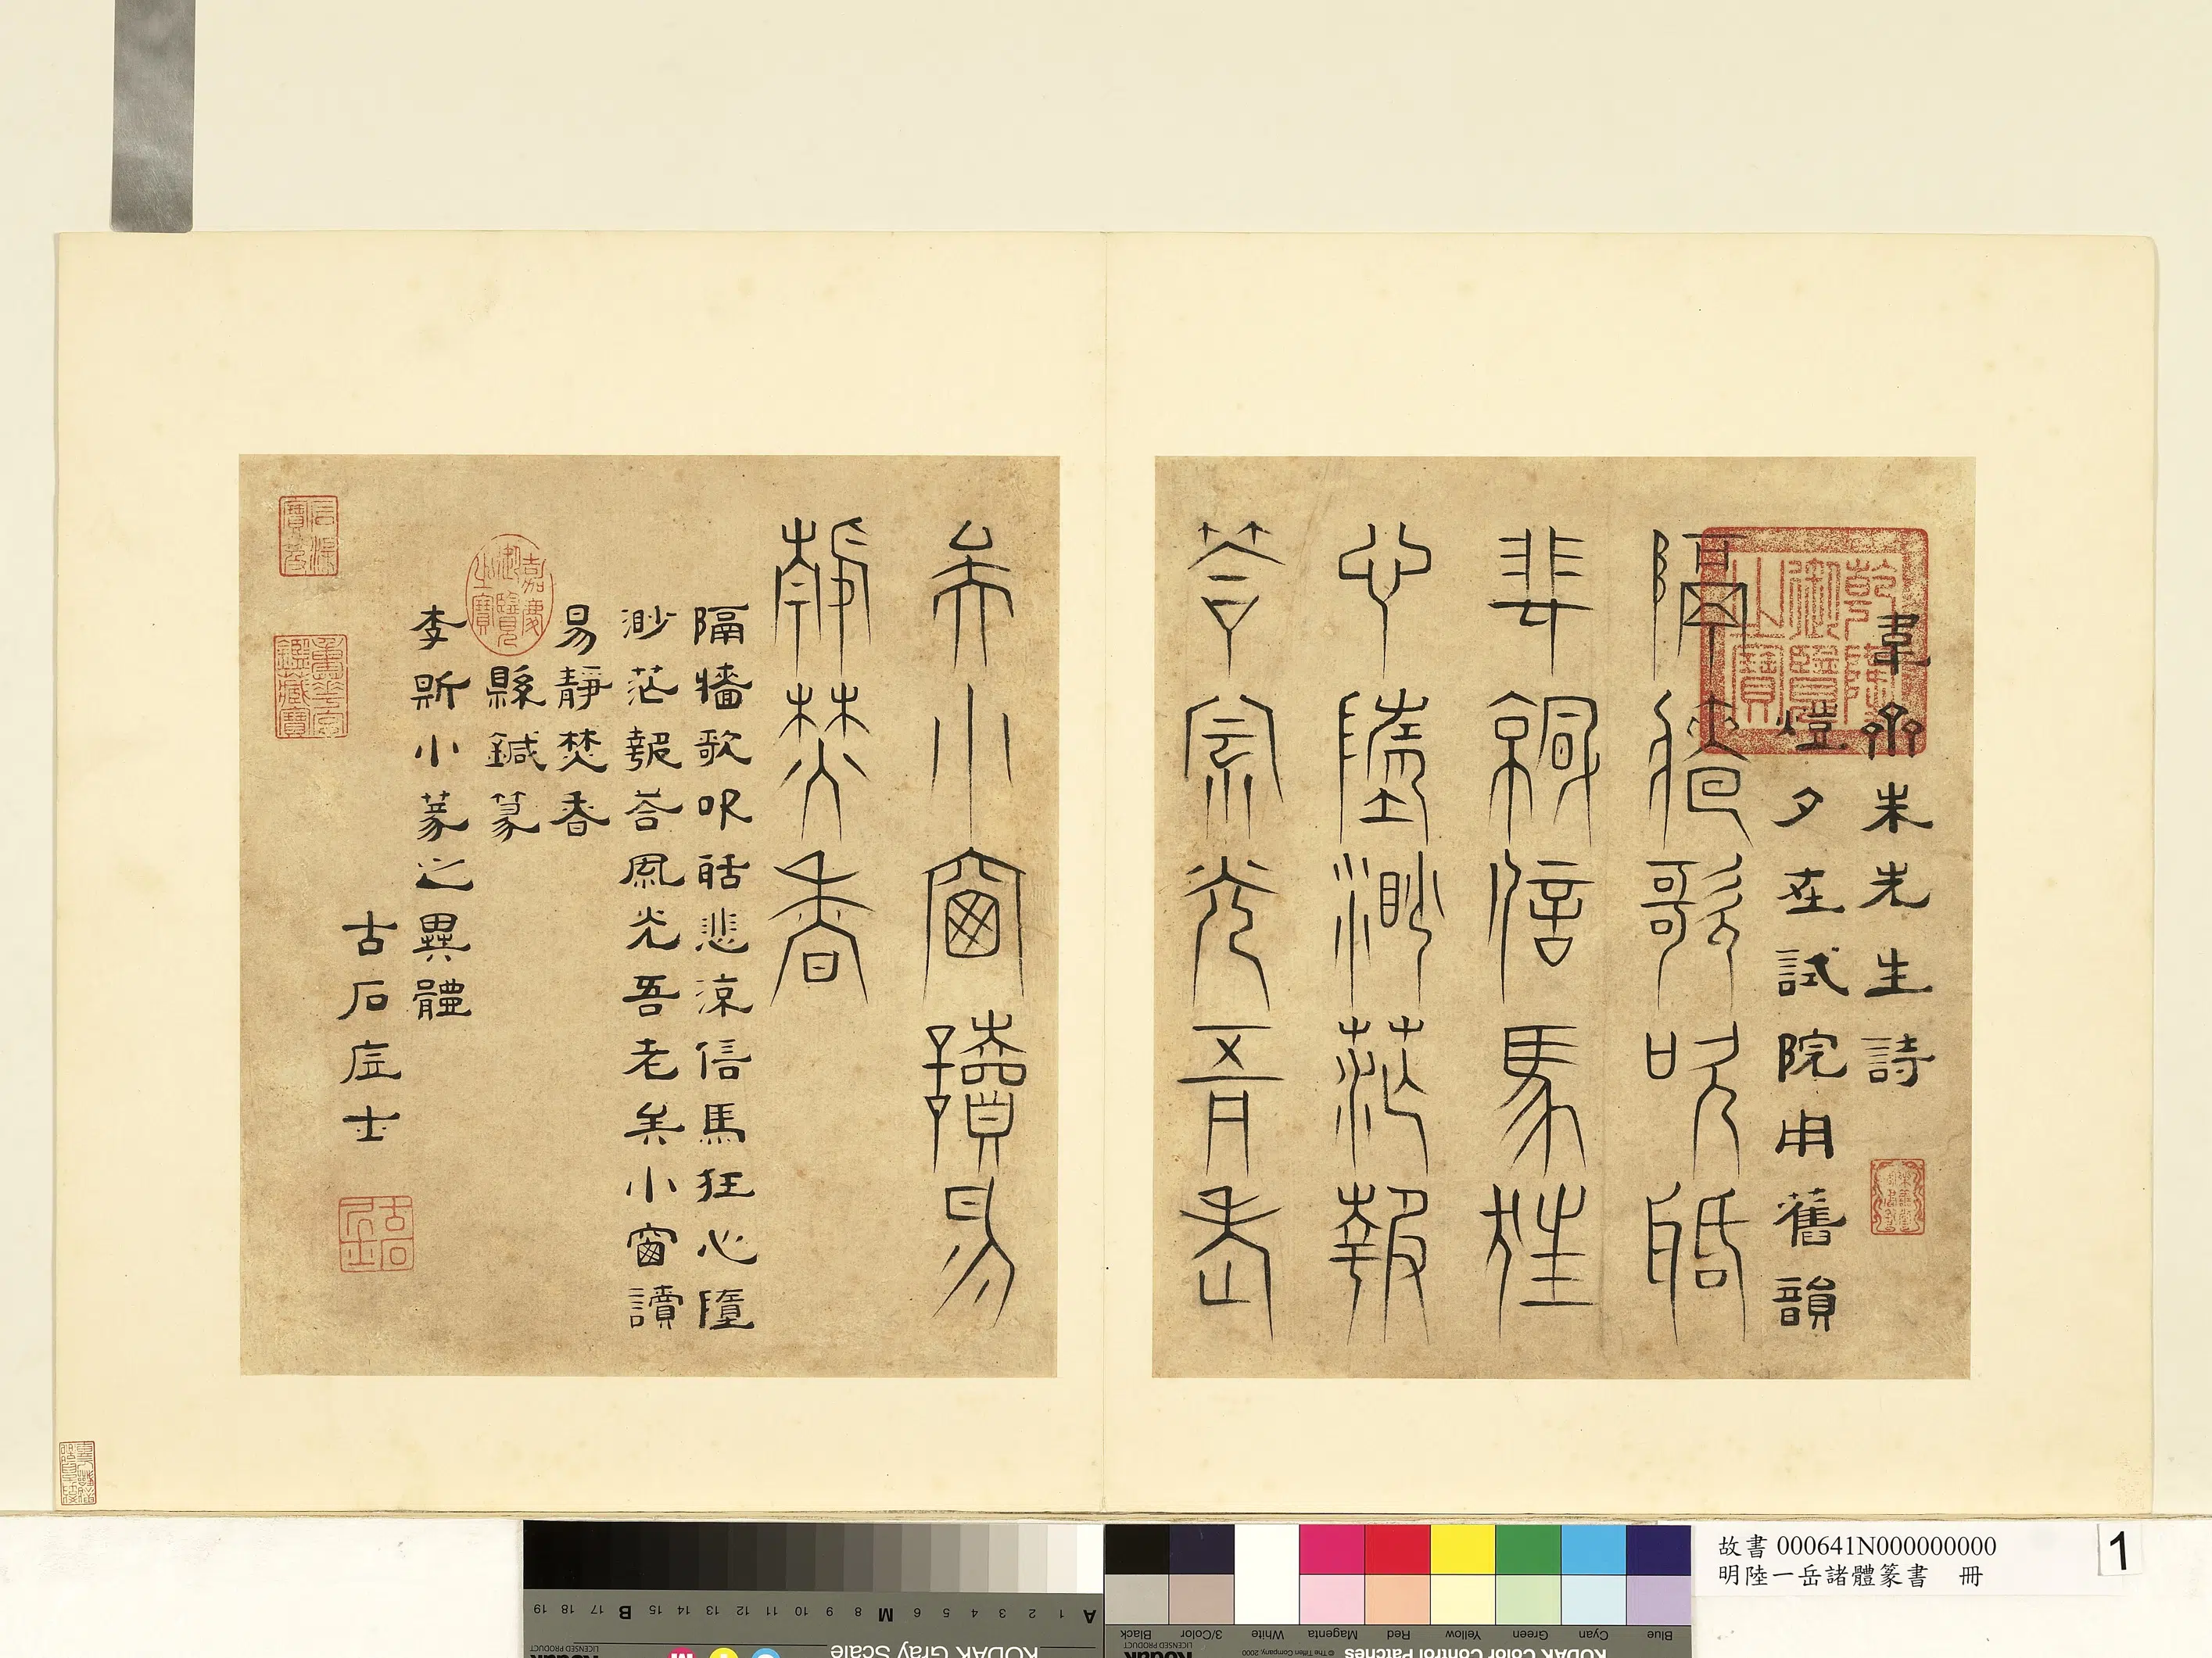 韋齋朱先生詩
燈夕在試院用舊韻
隔牆歌吹聒
悲涼信馬狂
心墮渺茫報
荅風光吾老
矣小窗讀易
靜焚香
隔牆歌吹聒悲涼信馬狂心墮
渺茫報荅風光吾老矣小窗讀
易靜焚香
縣鍼篆
李斯小篆之異體
古石處士
乾隆御覽之寶
嘉慶御覽之寶
石渠寶笈
重華宮鑑藏寶
故書 000641N000000000
明陸一岳諸體篆書 冊
1
A 1 2 3 4 5 6 M 8 9 10 11 12 13 14 15 B 17 18 19
KODAK Gray Scale
LICENSED PRODUCT
Blue Cyan Green Yellow Red Magenta White 3/Color Black
KODAK Color Control Patches
© The Tiffen Company, 2000
LICENSED PRODUCT